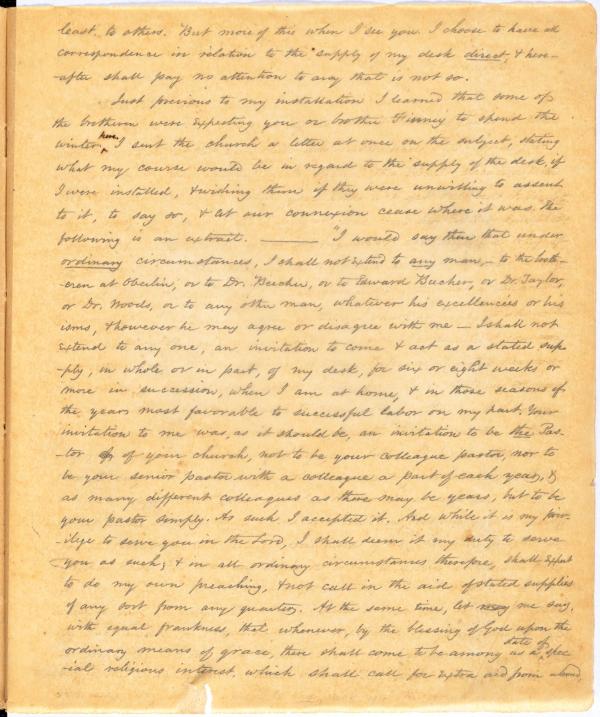 least, to others. But more of this when I see you. I choose to have all
correspondence in relation to the supply of my desk direct, & here-
-after shall pay no attention to any that is not so.
Just previous to my installation I learned that some of
the brethren were expecting you or brother Finney to spend the
winter here. I sent the church a letter at once on the subject, stating
what my course would be in regard to the supply of the desk, if
I were installed, & wishing them if they were unwilling to assent
to it, to say so, & let our connexion cease where it was. The
following is an extract. ——— "I would say then that under
ordinary circumstances, I shall not extend to any man, – to the breth-
-eren at Oberlin, or to Dr. Beecher, or to Edward Beecher, or Dr. Taylor,
or Dr. Woods, or to any other man, whatever his excellencies or his
isms, & however he may agree or disagree with me – I shall not
extend to any one, an invitation to come & act as a stated sup-
-ply, in whole or in part, of my desk, for six or eight weeks or
more in succession, when I am at home, & in those seasons of
the year most favorable to successful labor on my part. Your
invitation to me was, as it should be, an invitation to be the Pas-
-tor of your church, not to be your colleague pastor, nor to
be your senior pastor with a colleague a part of each year, &
as many different colleagues as there may be years, but to be
your pastor simply. As such I accepted it. And while it is my priv-
-ilege to serve you in the Lord, I shall deem it my duty to serve
you as such; & in all ordinary circumstances therefore, shall expect
to do my own preaching, & not call in the aid of stated supplies
of any sort from any quarter. At the same time, let me say,
with equal frankness, that whenever, by the blessing of God upon the
ordinary means of grace, there shall come to be among us a state of spec-
-ial religious interest, which shall call for extra aid from abroad,